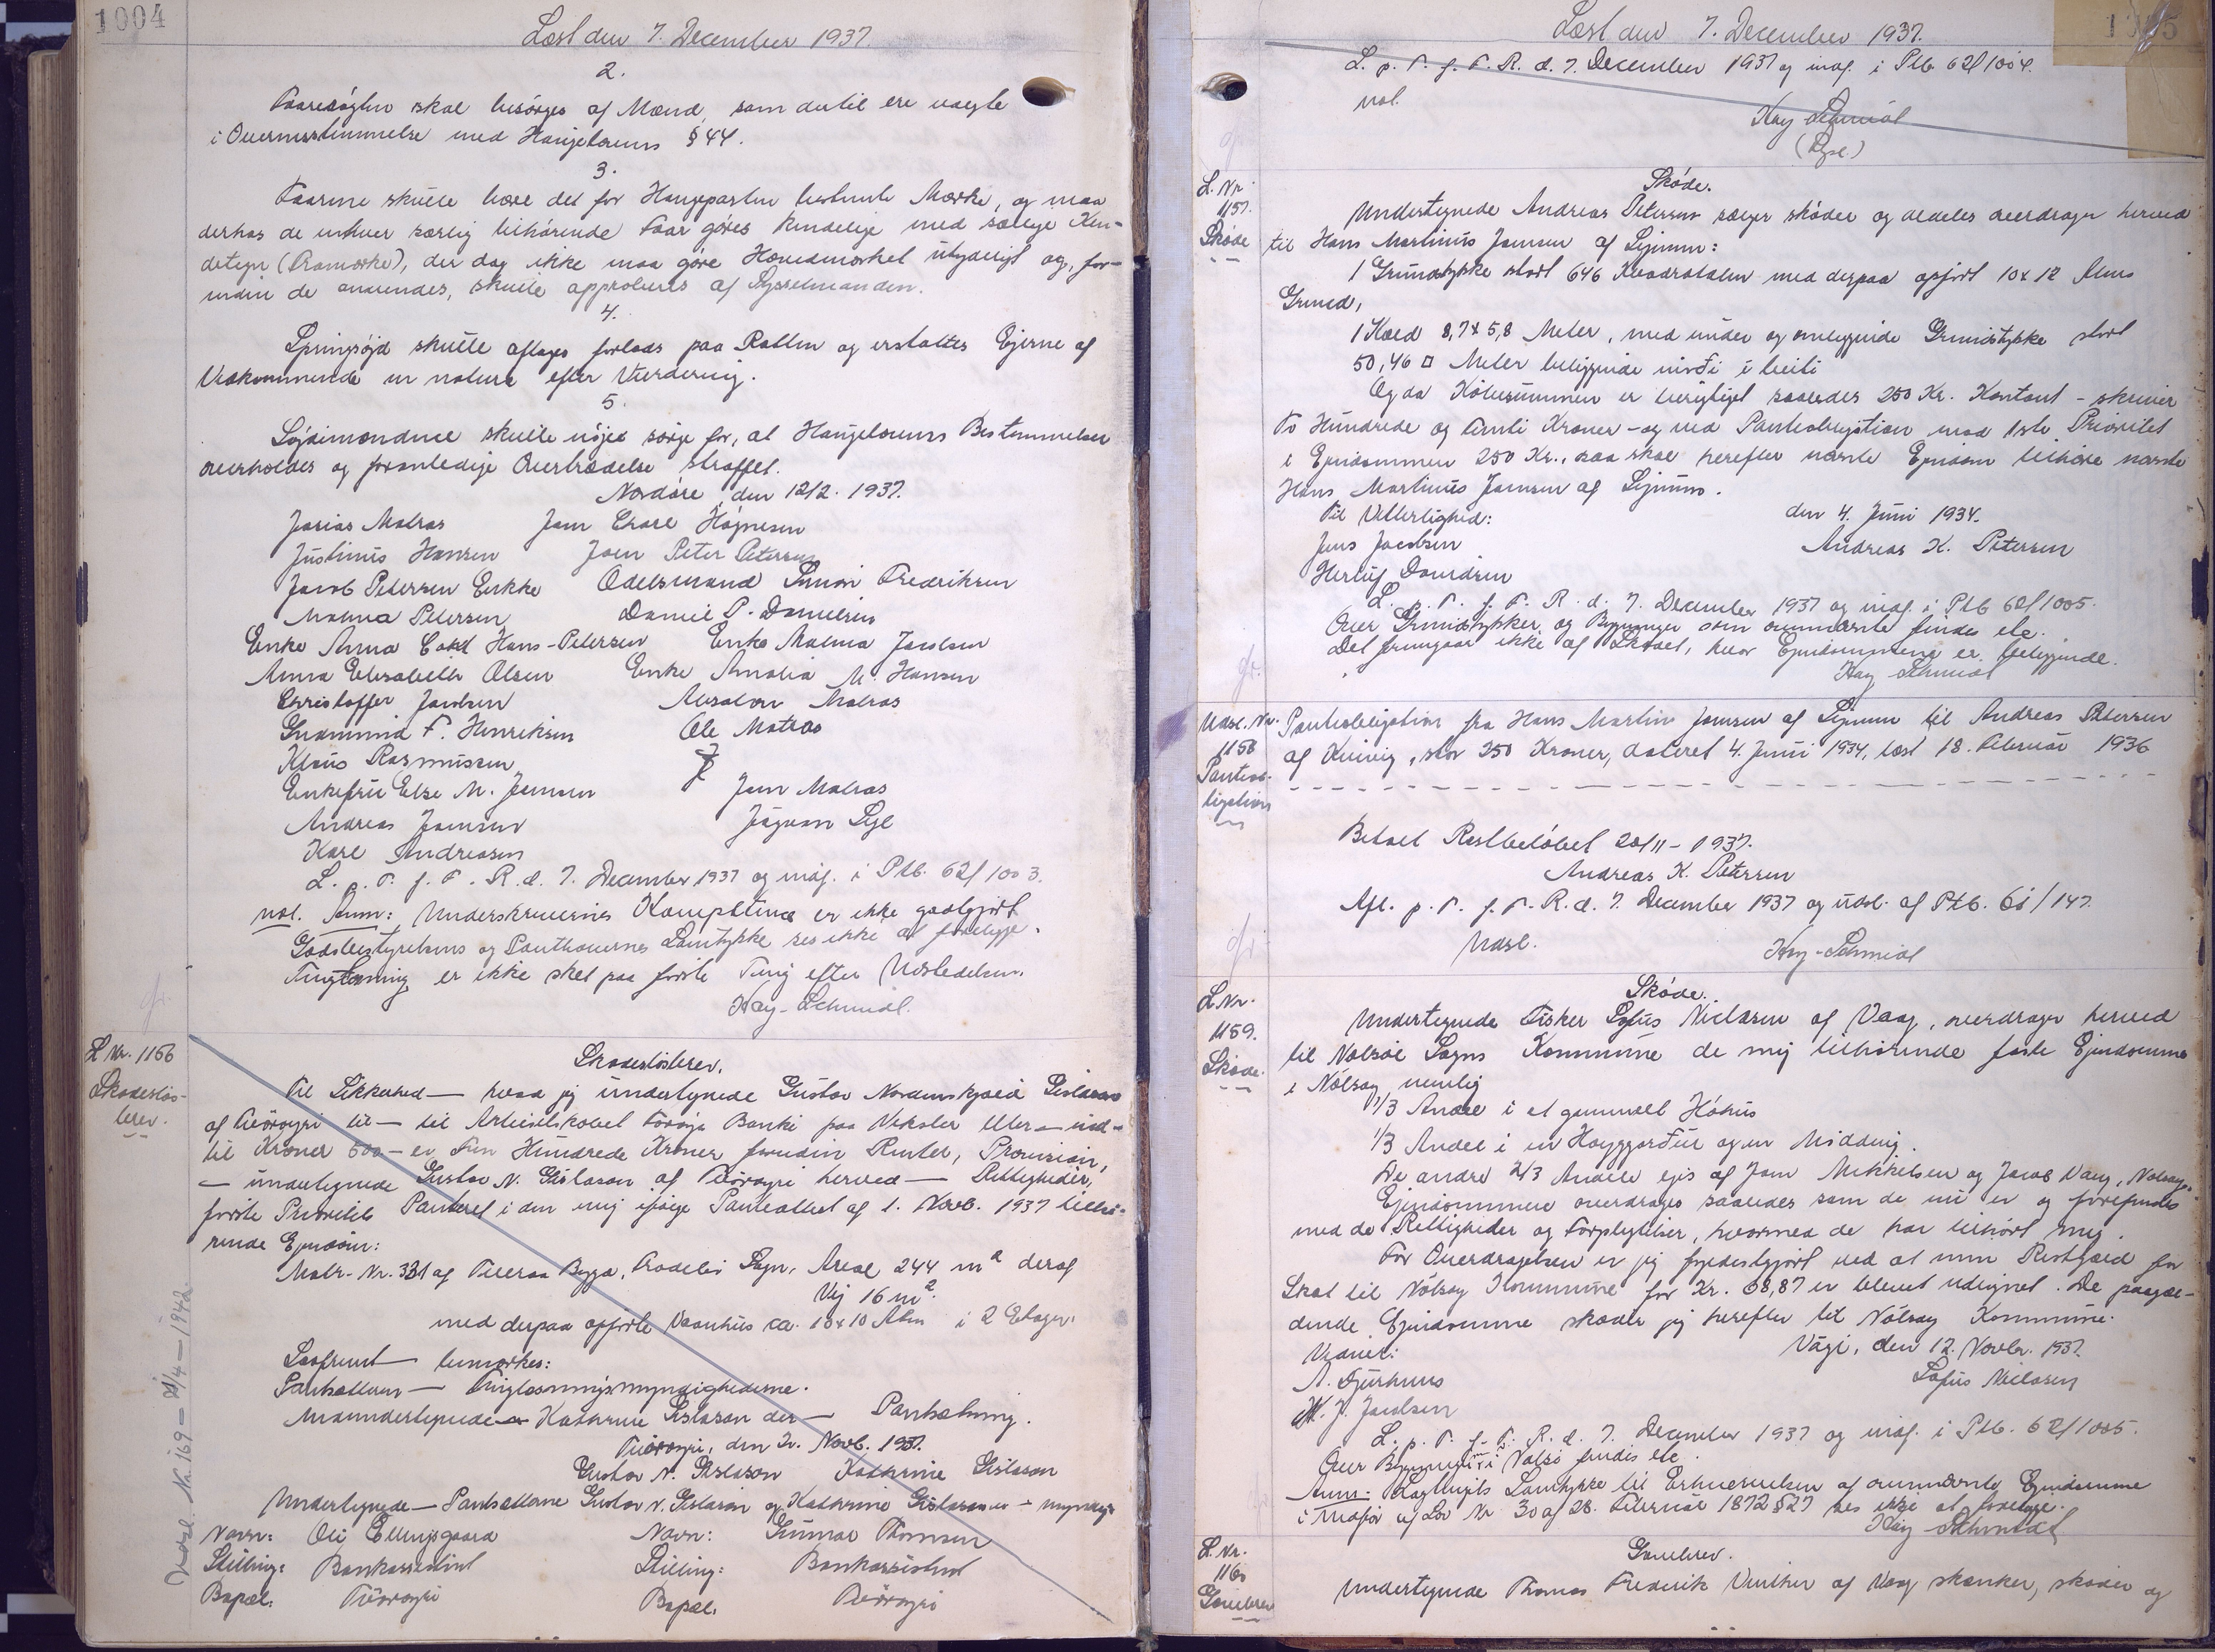 1004
Læst den 7. December 1937.
2.
Faaresøgten skal besørges af Mænd, som dertil ere valgte
i Overensstemmelse med Haugelovens § 44.
3.
Faarene skulle bære det for Haugeparten bestemte Mærke, og maa
derhos de enhver særlig tilhørende Faar gøres kendelige med særlige Ken-
detegn (Bramærke), der dog ikke maa gøre Hovedmærket utydeligt og, for-
inden de anvendes, skulle approberes af Sysselmanden.
4.
Springsøjd skulle aflages forlods paa Retten og erstattes Ejerne af
Vedkommende in natura efter Vurdering.
5.
Søjdimændene skulle nøjes sørge for, at Haugelovens Bestemmelser
overholdes og foranledige Overtrædelse straffet.
Nordøre, den 12/2. 1937.
Josias Matras Joen Charl Højnesen
Justinus Hansen Joen Peter Petersen
Jacob Petersen Enkke Odelsmand Simon Fredriksen
Malena Petersen Daniel P. Danielsen
Enke Anna Hans-Petersen Enke Malena Jacobsen
Anna Elisabeth Olsen Enke Amalia M. Hansen
Christoffer Jacobsen Absalon Matras
Gudmund F. Henriksen Ole Matras
Klaus Rasmussen
Enkefru Else M. Joensen Joen Matras
Andreas Joensen Jógvan Lyl
Karl Andreasen
L. p. T. f. F. R. d. 7. December 1937 og indf. i Ptb. 62/1003.
not. Anm: Underskrivernes Kompetence er ikke godtgjort
Godsbestyrelsens og Panthavernes Samtykke ses ikke at foreligge.
Tinglæsning er ikke sket paa første Ting efter Udstedelsen.
Kay-Schmidt.
L Nr. 1156
Skadesløs-
brev.
Skadesløsbrev.
Til Sikkerhed — hvad jeg undertegnede Gustav Nordenskjold Gislason
af Tvøroyri til — til Aktieselskabet Føroya Banki paa Veksler eller — ind-
til Kroner 500 — er Fem Hundrede Kroner foruden Renter, Provision,
— undertegnede Gustav N. Gislason af Tvøroyri herved — Rettigheder,
første Prioritets Panteret i den mig ifølge Panteattest af 1. Novb. 1937 tilhø-
rende Ejendom:
Matr-Nr. 331 af Tveraa Bygd, Frodebø Sogn, Areal 244 m² deraf
Vej 16 m².
med derpaa opførte Vaanhus ca. 10x10 Alen i 2 Etager.
Saafremt — bemærkes:
Pantsætteren — Tinglæsningsmyndighederne.
Medundertegnede — Kathrine Gislason der — Pantsætning.
Tvøroyri, den 2. Novb. 1937.
Gustav N. Gislason Kathrine Gislason
Undertegnede — Pantsætterne Gustav N. Gislason og Kathrine Gislason er — myndige
Navn: Oli Ellingsgaard Navn: Gunnar Thomsen
Stilling: Bankassistent Stilling: Bankassistent
Bopæl: Tvøroyri Bopæl: Tvøroyri
Udsl. Nr. 169 — 21/4 — 1942.
1005
Læst den 7. December 1937.
L. p. T. f. F. R. d. 7. December 1937 og indf. i Ptb 62/1004.
not.
Kay Schmidt
(Dgse.)
L. Nr.
1157.
Skøde
Skøde.
Undertegnede Andreas Petersen sælger skøder og aldeles overdrager herved
til Hans Martinus Joensen af Lejnum:
1 Grundstykke stort 646 Kvadratalen med derpaa opført 10x12 Alens
Grund,
1 Kæld 8,7x5,8 Meter, med under og omliggende Grundstykke stort
50,46 □ Meter beliggende norði í beiti
Og da Købesummen er berigtiget saaledes 250 Kr. Kontant - skriver
To Hundrede og Femti Kroner - og ved Panteobligation med 1ste Prioritet
i Ejendommen 250 Kr., saa skal herefter nævnte Ejendom tilhøre nævnte
Hans Martinus Joensen af Lejnum.
Til Vitterlighed: den 4. Juni 1934.
Jens Jacobsen Andreas K. Petersen
Herluf Davidsen
L. p. T. f. F. R. d. 7. December 1937 og indf. i Ptb 62/1005.
Over Grundstykker og Bygninger som ovennævnte findes ele.
Det fremgaar ikke af Skødet, hvor Ejendommene er beliggende.
Kay Schmidt
Udsl. Nr.
1158
Panteob-
ligation
Panteobligation fra Hans Martin Joensen af Lejnum til Andreas Petersen
af Kvivig, stor 250 Kroner, dateret 4. Juni 1934, læst 18. Februar 1936
Betalt Restbeløbet 20/11 - 1937.
Andreas K. Petersen
Afl. p. T. f. F. R. d. 7. December 1937 og udsl. af Ptb. 61/147.
Udsl. Kay-Schmidt
L. Nr.
1159.
Skøde.
Skøde.
Undertegnede Fisker Sofus Nielsen af Vaag, overdrager herved
til Nolsø Sogns Kommune de mig tilhørende faste Ejendomme
i Nólsoy nemlig
1/3 Andel i et gammelt Hóhus
1/3 Andel i en Hoyggjarður og en Mødding.
De andre 2/3 Andele ejes af Joen Mikkelsen og Jacob Vang, Nolsoy.
Ejendommene overdrages saaledes som de nu er og forefindes
med de Rettigheder og Forpligtelser, hvormed de har tilhørt mig.
For Overdragelsen er jeg fyldestgjort ved at min Restgæld for
Skat til Nólsoy Kommune for Kr. 68,87 er blevet udlignet. De paagæl-
dende Ejendomme skøder jeg herefter til Nólsoy Kommune.
Vidner: Vági, den 12. Novbr. 1937.
A. Djurhuus Sofus Nielsen
M. J. Jacobsen
L. p. T. f. F. R. d. 7. December 1937 og indf. i Ptb. 62/1005.
Over Bygninger i Nolsø findes ele.
Anm: Lagtingets Samtykke til Erhvervelsen af ovennævnte Ejendomme
i Medfør af Lov Nr 30 af 28. Februar 1872 § 27 ses ikke at foreligge.
Kay Schmidt
L. Nr.
1160
Gavebrev
Gavebrev.
Undertegnede Thomas Frederik Vinther af Vaag skænker, skøder og